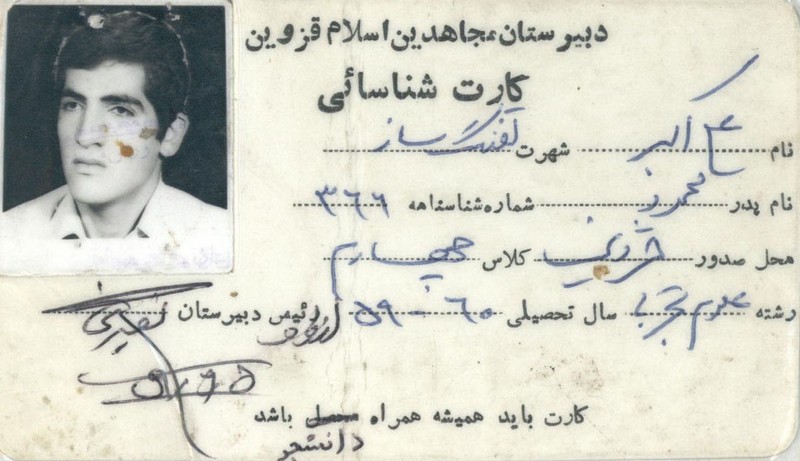 دبیرستان مجاهدین اسلام قزوین
کارت شناسائی
نام علی اکبر شهرت تفنگ ساز
نام پدر محمود شماره شناسنامه ۳۶۶
محل صدور قزوین کلاس چهارم
رشته علوم تجربی سال تحصیلی ۶۰-۵۹ رئیس دبیرستان
کارت باید همیشه همراه محصل باشد
دانشجو